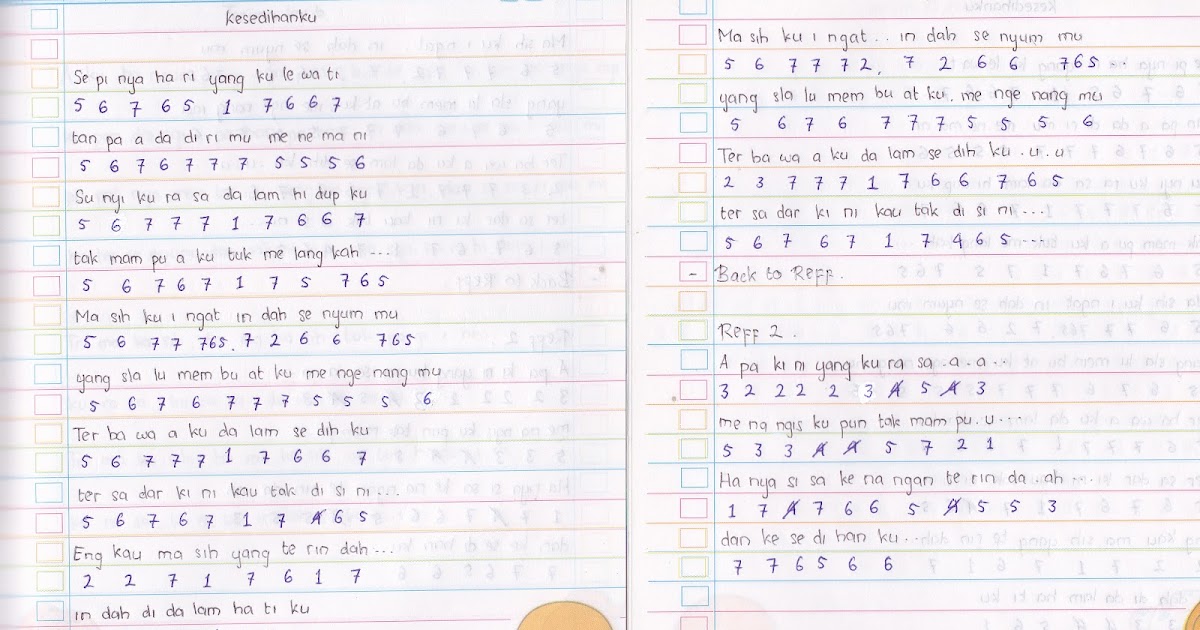 Kesedihanku
Se pi nya ha ri yang ku le wa ti
5 6 7 6 5 1 7 6 6 7
tan pa a da di ri mu me ne ma ni
5 6 7 6 7 7 7 5 5 5 6
Su nyi ku ra sa da lam hi dup ku
5 6 7 7 7 1 7 6 6 7
tak mam pu a ku tuk me lang kah ...
5 6 7 6 7 1 7 5 7 6 5
Ma sih ku i ngat in dah se nyum mu
5 6 7 7 765. 7 2 6 6 7 6 5
yang sla lu mem bu at ku me nge nang mu
5 6 7 6 7 7 7 5 5 5 6
Ter ba wa a ku da lam se dih ku
5 6 7 7 7 1 7 6 6 7
ter sa dar ki ni kau tak di si ni ...
5 6 7 6 7 1 7 4 6 5
Eng kau ma sih yang te rin dah ...
2 2 7 1 7 6 1 7
in dah di da lam ha ti ku
Ma sih ku i ngat .. in dah se nyum mu
5 6 7 7 7 2, 7 2 6 6 765
yang sla lu mem bu at ku. me nge nang mu
5 6 7 6 7 7 7 5 5 5 6
Ter ba wa a ku da lam se dih ku . u . u
2 3 7 7 7 1 7 6 6 7 6 5
ter sa dar ki ni kau tak di si ni ...
5 6 7 6 7 1 7 4 6 5 ...
- Back to Reff.
Reff 2.
A pa ki ni yang ku ra sa . a . a ...
3 2 2 2 2 3 4 5 4 3
me na ngis ku pun tak mam pu. u ...
5 3 3 4 4 5 7 2 1
Ha nya si sa ke na ngan te rin da . ah ...
1 7 4 7 6 6 5 4 5 5 3
dan ke se di han ku ...
7 7 6 5 6 6